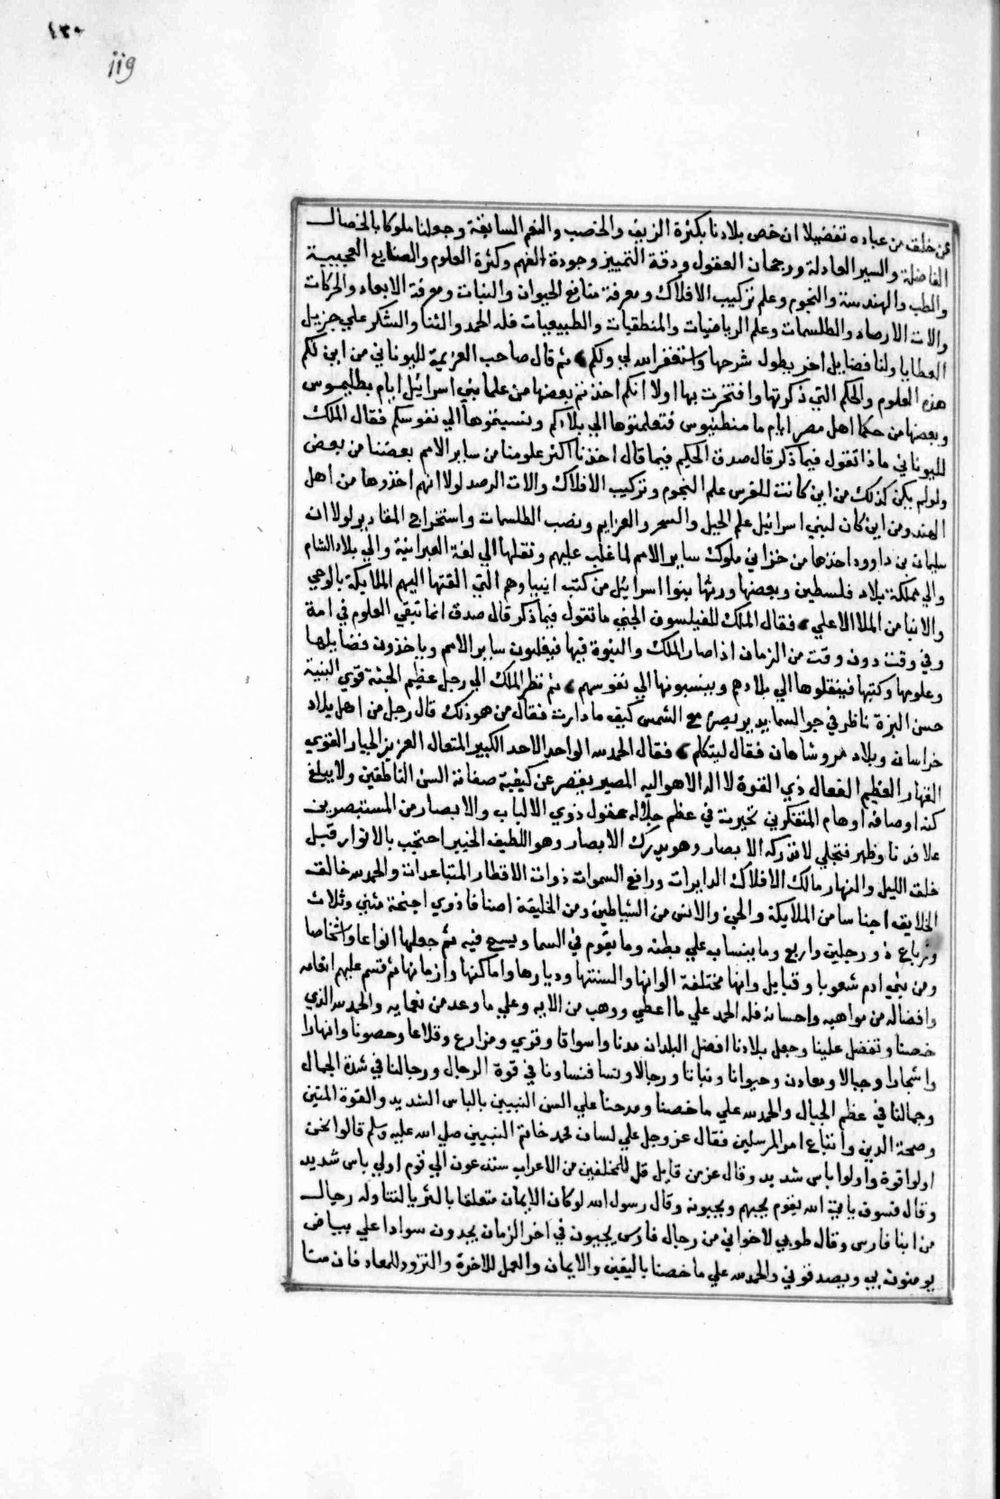 ٤٣٠
119
ممن خلق من عباده تفضيلا ان خص بلادنا بكثرة الريف والخصب والنعم السابغة وجعلنا ملوكا بالخصال
الفاضلة والسير العادلة ورجحان العقول ودقة التمييز وجودة الفهم وكثرة العلوم والصنايع العجيبة
والطب والهندسة والنجوم وعلم تركيب الافلاك ومعرفة منافع الحيوان والنبات ومعرفة الابعاد والحركات
والات الارصاد والطلسمات وعلم الرياضيات والمنطقيات والطبيعيات فله الحمد والثنا والشكر علي جزيل
العطايا ولنا فضايل اخر يطول شرحها واستغفر الله لي ولكم ثم قال صاحب العزيمة لليوناني من اين لكم
هذه العلوم والحكم التي ذكرتها وافتخرت بها اولا انكم اخذتم بعضها من علما بني اسرائيل ايام بطليموس
وبعضها من حكما اهل مصر ايام ما منطنيوس فتعلمتوها الي بلادكم ونسبتموها الي نفوسكم فقال الملك
لليوناني ماذا تقول فيما ذكر قال صدق الحكيم فيما قال اخذنا اكثر علومنا من ساير الامم بعضنا من بعض
ولو لم يكن كذلك من اين كانت للفرس علم النجوم وتركيب الافلاك والات الرصد لولا انهم اخذوها من اهل
الهند ومن اين كان لبني اسرائيل علم الحيل والسحر والعزايم ونصب الطلسمات واستخراج المقادير لولا ان
سليمان بن داوود اخذها من خزاين ملوك ساير الامم لما غلب عليهم ونقلها الي لغة العبرانية والي بلاد الشام
والي مملكة بلاد فلسطين وبعضها ورثها بنوا اسرائيل من كتب انبياوهم التي القتها اليهم الملايكة بالوحي
والانبا من الملا الاعلي فقال الملك للفيلسوف الجني ما تقول فيما ذكر قال صدق انما تبقي العلوم في امة
وفي وقت دون وقت من الزمان اذا صار الملك والنبوة فيها فيغلبون ساير الامم وياخذون فضايلها
وعلومها وكتبها فينقلوها الي بلادهم وينسبونها الي نفوسهم ثم نظر الملك الي رجل عظيم الجثة قوي البنية
حسن البزة ناظر في جو السما يدير بصره مع الشمس كيف ما دارت فقال من هو ذلك قال رجل من اهل بلاد
خراسان وبلاد مرو شاهان فقال ليتكلم فقال الحمد لله الواحد الاحد الكبير المتعال العزيز الجبار القوي
القهار العظيم الفعال ذي القوة لا اله الا هو اليه المصير يقصر عن كيفية صفاته السن الناطقين ولا يبلغ
كنه اوصافه اوهام المتفكرين تحيرت في عظم جلاله عقول ذوي الالباب والابصار من المستبصرين
علا فدنا وظهر فتجلي لا تدركه الابصار وهو يدرك الابصار وهو اللطيف الخبير احتجب بالانوار قبل
خلق الليل والنهار مالك الافلاك الدايرات ورافع السموات ذوات الاقطار المتباعدات والحمد لله خالق
الخلايق اجناسا من الملايكة والجن والانس من الشياطين ومن الخليقة اصنافا ذوي اجنحة مثني وثلاث
ورباع وذو رجلين واربع وما ينساب علي بطنه وما يقوم في السما ويسبح فيه ثم جعلها انواعا واشخاصا
ومن بني ادم شعوبا وقبايل وانها مختلفة الوانها والسنتها وديارها واماكنها وازمانها ثم قسم عليهم انعامه
وافضاله من مواهبه واحسانه فله الحمد علي ما اعطي ووهب من الايه وعلي ما وعد من نعمايه والحمد لله الذي
خصنا وتفضل علينا وجعل بلادنا افضل البلدان مدنا واسواقا وقري ومزارع وقلاعا وحصونا وانهارا
واشجارا وجبالا ومعادن وحيوانا ونباتا ورجالا ونسا فنساونا في قوة الرجال ورجالنا في شدة الجمال
وجمالنا في عظم الجبال والحمد لله علي ما خصنا ومدحنا علي السن النبيين بالباس الشديد والقوة المتين
وصحة الدين واتباع امر المرسلين فقال عز وجل علي لسان محمد خاتم النبيين صلي الله عليه وسلم قالوا نحن
اولوا قوة واولوا باس شديد وقال عز من قايل قل للمخلفين من الاعراب ستدعون الي قوم اولي باس شديد
وقال فسوف ياتي الله بقوم يحبهم ويحبونه وقال رسول الله لو كان الايمان متعلقا بالثريا لتناوله رجال
من ابنا فارس وقال طوبي لاخواني من رجال فارس يجيون في اخر الزمان يجدون سوادا علي بياض
يومنون بي ويصدقوني والحمد لله علي ما خصنا باليقين والايمان والعمل للاخرة والتزود للمعاد فان منا